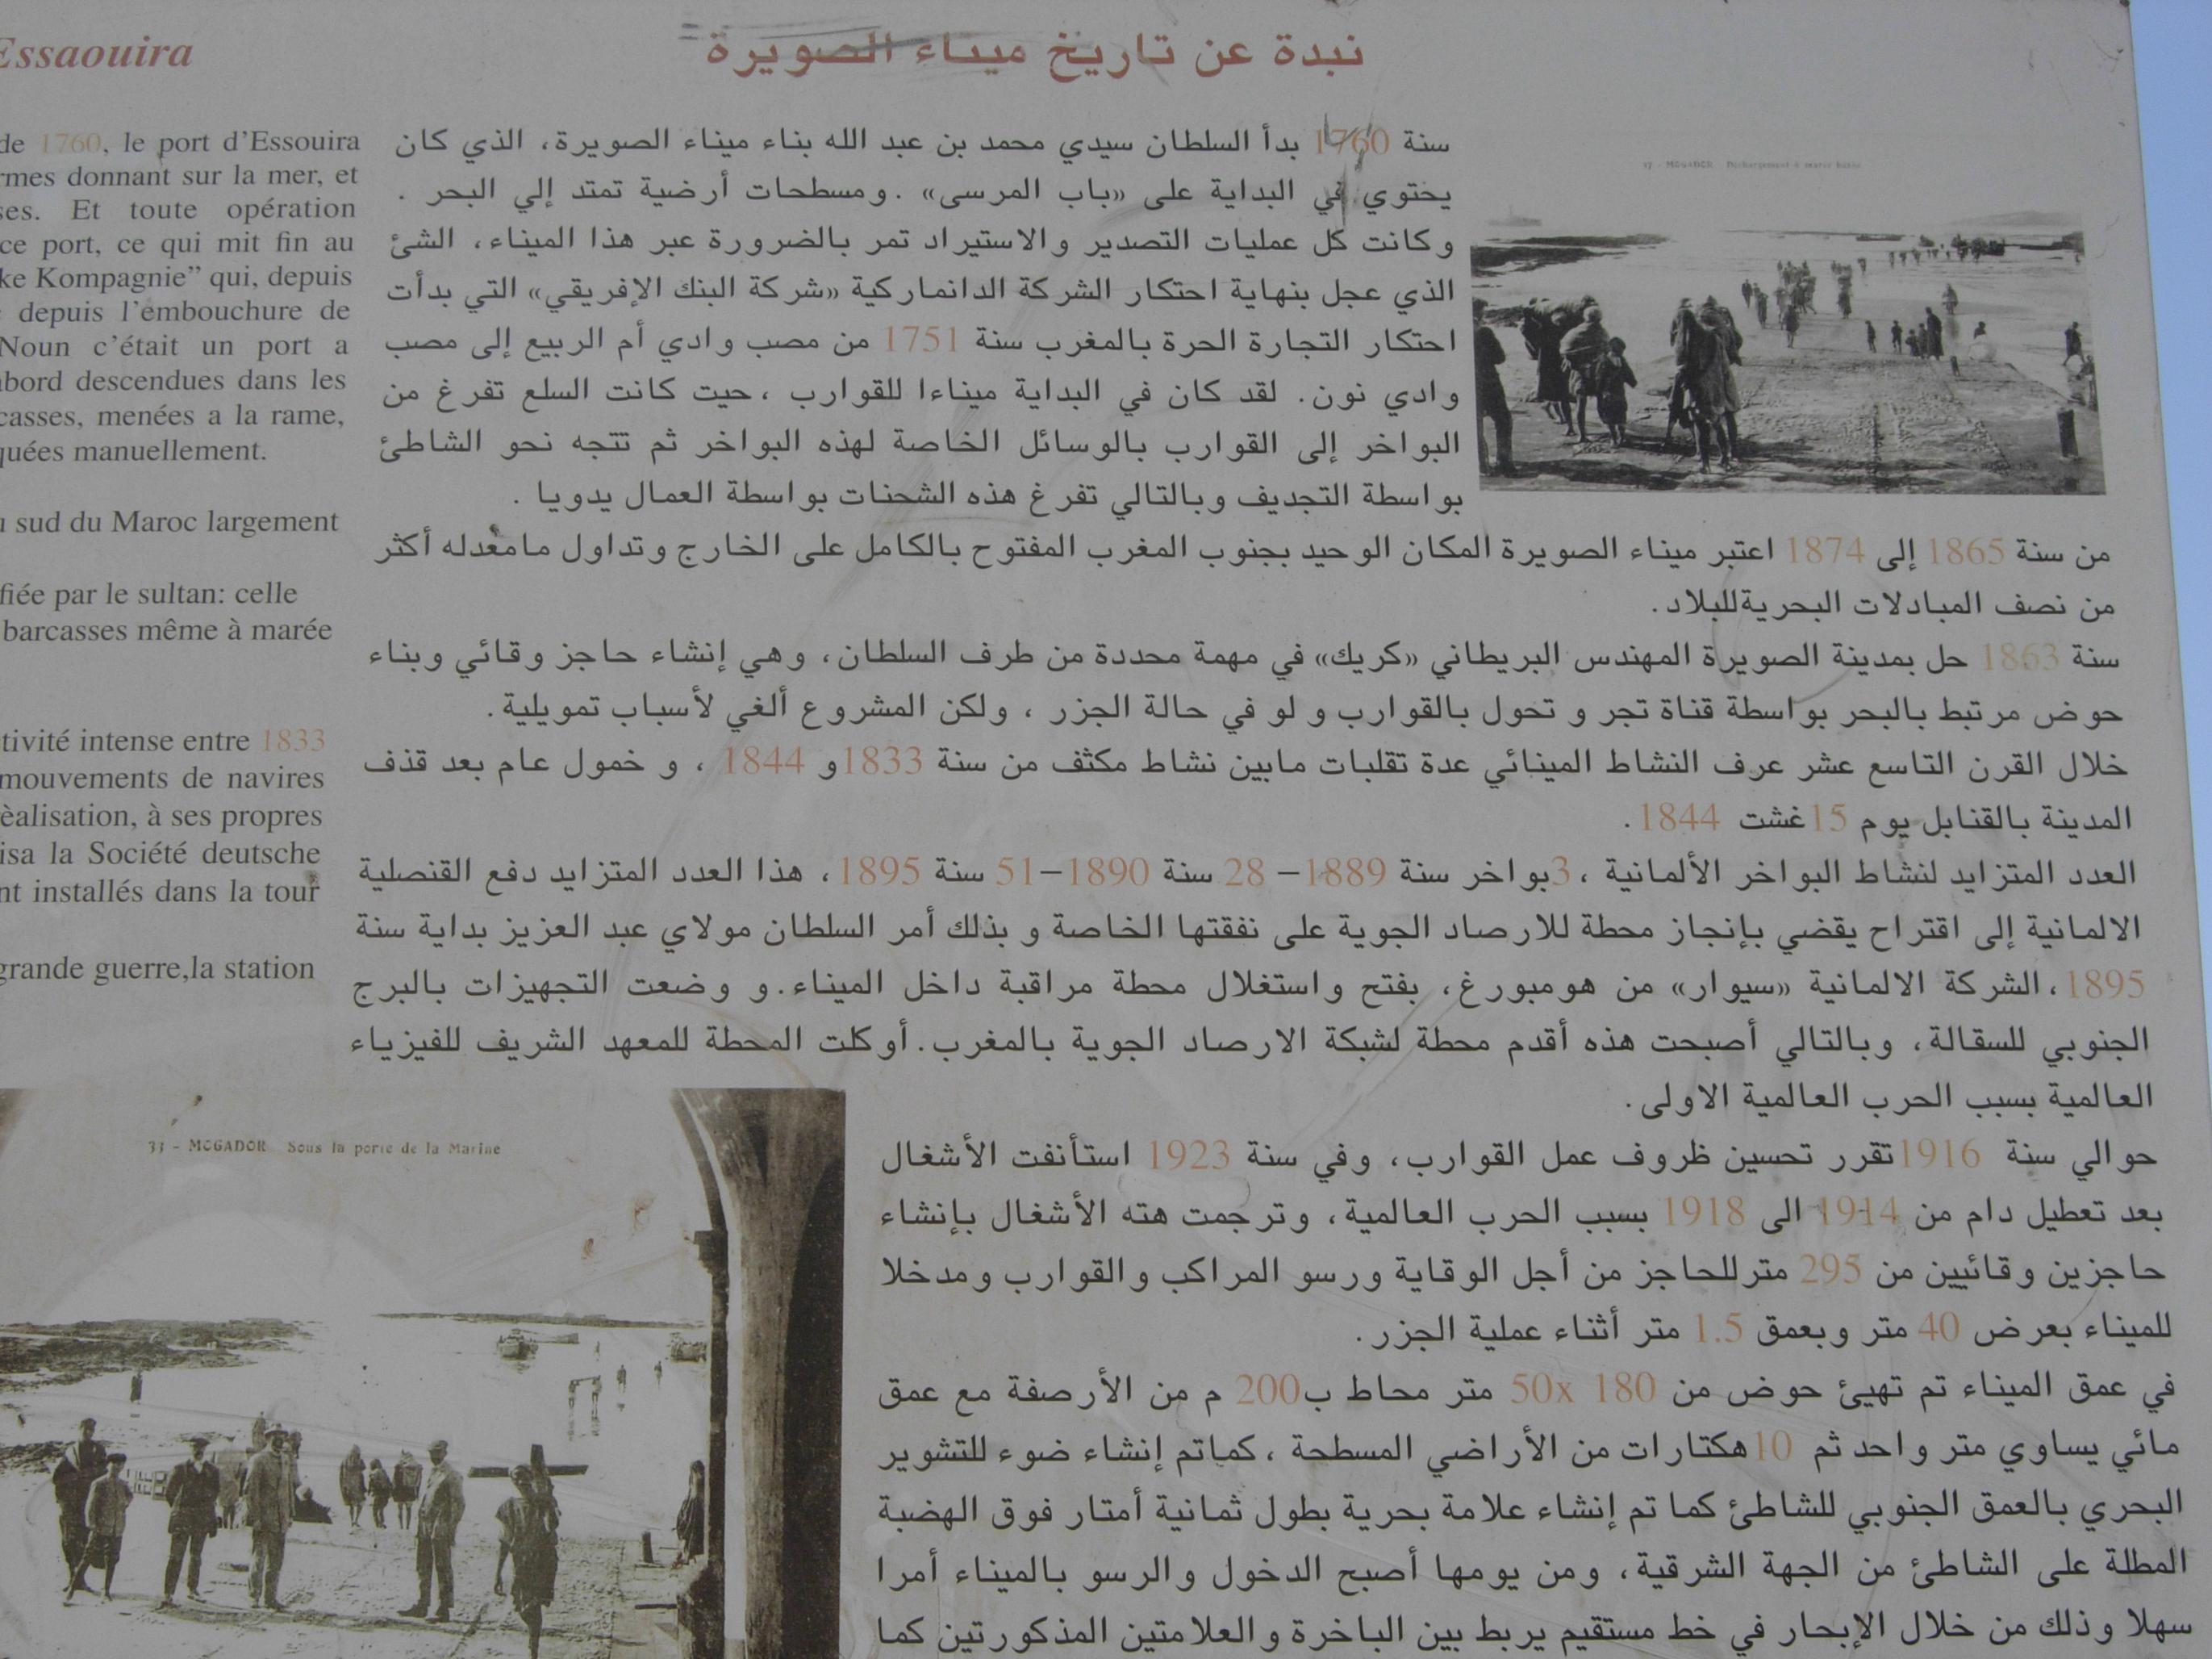 نبدة عن تاريخ ميناء الصويرة
سنة 1760 بدأ السلطان سيدي محمد بن عبد الله بناء ميناء الصويرة، الذي كان
يحتوي في البداية على «باب المرسى» . ومسطحات أرضية تمتد إلي البحر .
وكانت كل عمليات التصدير والاستيراد تمر بالضرورة عبر هذا الميناء، الشئ
الذي عجل بنهاية احتكار الشركة الدانماركية «شركة البنك الإفريقي» التي بدأت
احتكار التجارة الحرة بالمغرب سنة 1751 من مصب وادي أم الربيع إلى مصب
وادي نون. لقد كان في البداية ميناءا للقوارب ، حيت كانت السلع تفرغ من
البواخر إلى القوارب بالوسائل الخاصة لهذه البواخر ثم تتجه نحو الشاطئ
بواسطة التجديف وبالتالي تفرغ هذه الشحنات بواسطة العمال يدويا .
من سنة 1865 إلى 1874 اعتبر ميناء الصويرة المكان الوحيد بجنوب المغرب المفتوح بالكامل على الخارج وتداول مامعدله أكثر
من نصف المبادلات البحريةللبلاد .
سنة 1863 حل بمدينة الصويرة المهندس البريطاني «كريك» في مهمة محددة من طرف السلطان، وهي إنشاء حاجز وقائي وبناء
حوض مرتبط بالبحر بواسطة قناة تجر و تحول بالقوارب و لو في حالة الجزر ، ولكن المشروع ألغي لأسباب تمويلية .
خلال القرن التاسع عشر عرف النشاط المينائي عدة تقلبات مابين نشاط مكثف من سنة 1833و 1844 ، و خمول عام بعد قذف
المدينة بالقنابل يوم 15غشت 1844 .
العدد المتزايد لنشاط البواخر الألمانية ، 3بواخر سنة 1889– 28 سنة 1890–51 سنة 1895، هذا العدد المتزايد دفع القنصلية
الالمانية إلى اقتراح يقضي بإنجاز محطة للارصاد الجوية على نفقتها الخاصة و بذلك أمر السلطان مولاي عبد العزيز بداية سنة
1895، الشركة الالمانية «سيوار» من هومبورغ، بفتح واستغلال محطة مراقبة داخل الميناء.و وضعت التجهيزات بالبرج
الجنوبي للسقالة، وبالتالي أصبحت هذه أقدم محطة لشبكة الارصاد الجوية بالمغرب. أوكلت المحطة للمعهد الشريف للفيزياء
العالمية بسبب الحرب العالمية الاولى.
حوالي سنة 1916تقرر تحسين ظروف عمل القوارب، وفي سنة 1923 استأنفت الأشغال
بعد تعطيل دام من 1914 الى 1918 بسبب الحرب العالمية، وترجمت هته الأشغال بإنشاء
حاجزين وقائيين من 295 مترللحاجز من أجل الوقاية ورسو المراكب والقوارب ومدخلا
للميناء بعرض 40 متر وبعمق 1.5 متر أثناء عملية الجزر .
في عمق الميناء تم تهيئ حوض من 180 50x متر محاط ب200 م من الأرصفة مع عمق
مائي يساوي متر واحد ثم 10هكتارات من الأراضي المسطحة ، كماتم إنشاء ضوء للتشوير
البحري بالعمق الجنوبي للشاطئ كما تم إنشاء علامة بحرية بطول ثمانية أمتار فوق الهضبة
المطلة على الشاطئ من الجهة الشرقية، ومن يومها أصبح الدخول والرسو بالميناء أمرا
سهلا وذلك من خلال الإبحار في خط مستقيم يربط بين الباخرة والعلامتين المذكورتين كما
Essaouira
de 1760, le port d'Essouira
rmes donnant sur la mer, et
ses. Et toute opération
ce port, ce qui mit fin au
ke Kompagnie" qui, depuis
depuis l'embouchure de
Noun c'était un port a
abord descendues dans les
casses, menées a la rame,
quées manuellement.
u sud du Maroc largement
fiée par le sultan: celle
barcasses même à marée
tivité intense entre 1833
mouvements de navires
rèalisation, à ses propres
isa la Société deutsche
nt installés dans la tour
grande guerre,la station
17 - MOGADOR Déchargement à marée basse
33 - MOGADOR Sous la porte de la Marine